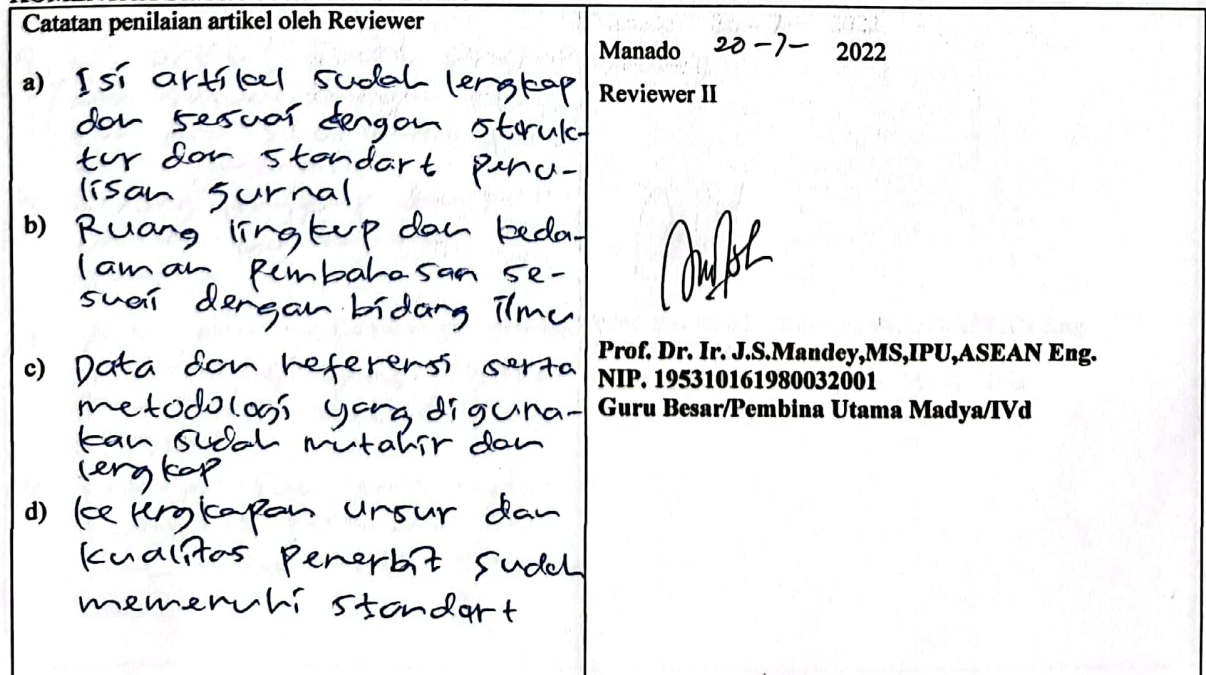 Catatan penilaian artikel oleh Reviewer
a) Isi artikel sudah lengkap
dan sesuai dengan struk-
tur dan standart penu-
lisan Jurnal
b) Ruang lingkup dan keda-
laman pembahasan se-
suai dengan bidang ilmu
c) Data dan referensi serta
metodologi yang diguna-
kan sudah mutahir dan
lengkap
d) kelengkapan unsur dan
kualitas penerbit sudah
memenuhi standart
Manado 20-7- 2022
Reviewer II
Prof. Dr. Ir. J.S.Mandey,MS,IPU,ASEAN Eng.
NIP. 195310161980032001
Guru Besar/Pembina Utama Madya/IVd